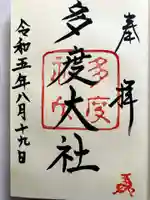 奉拝
多度大社
令和五年八月十九日
多度